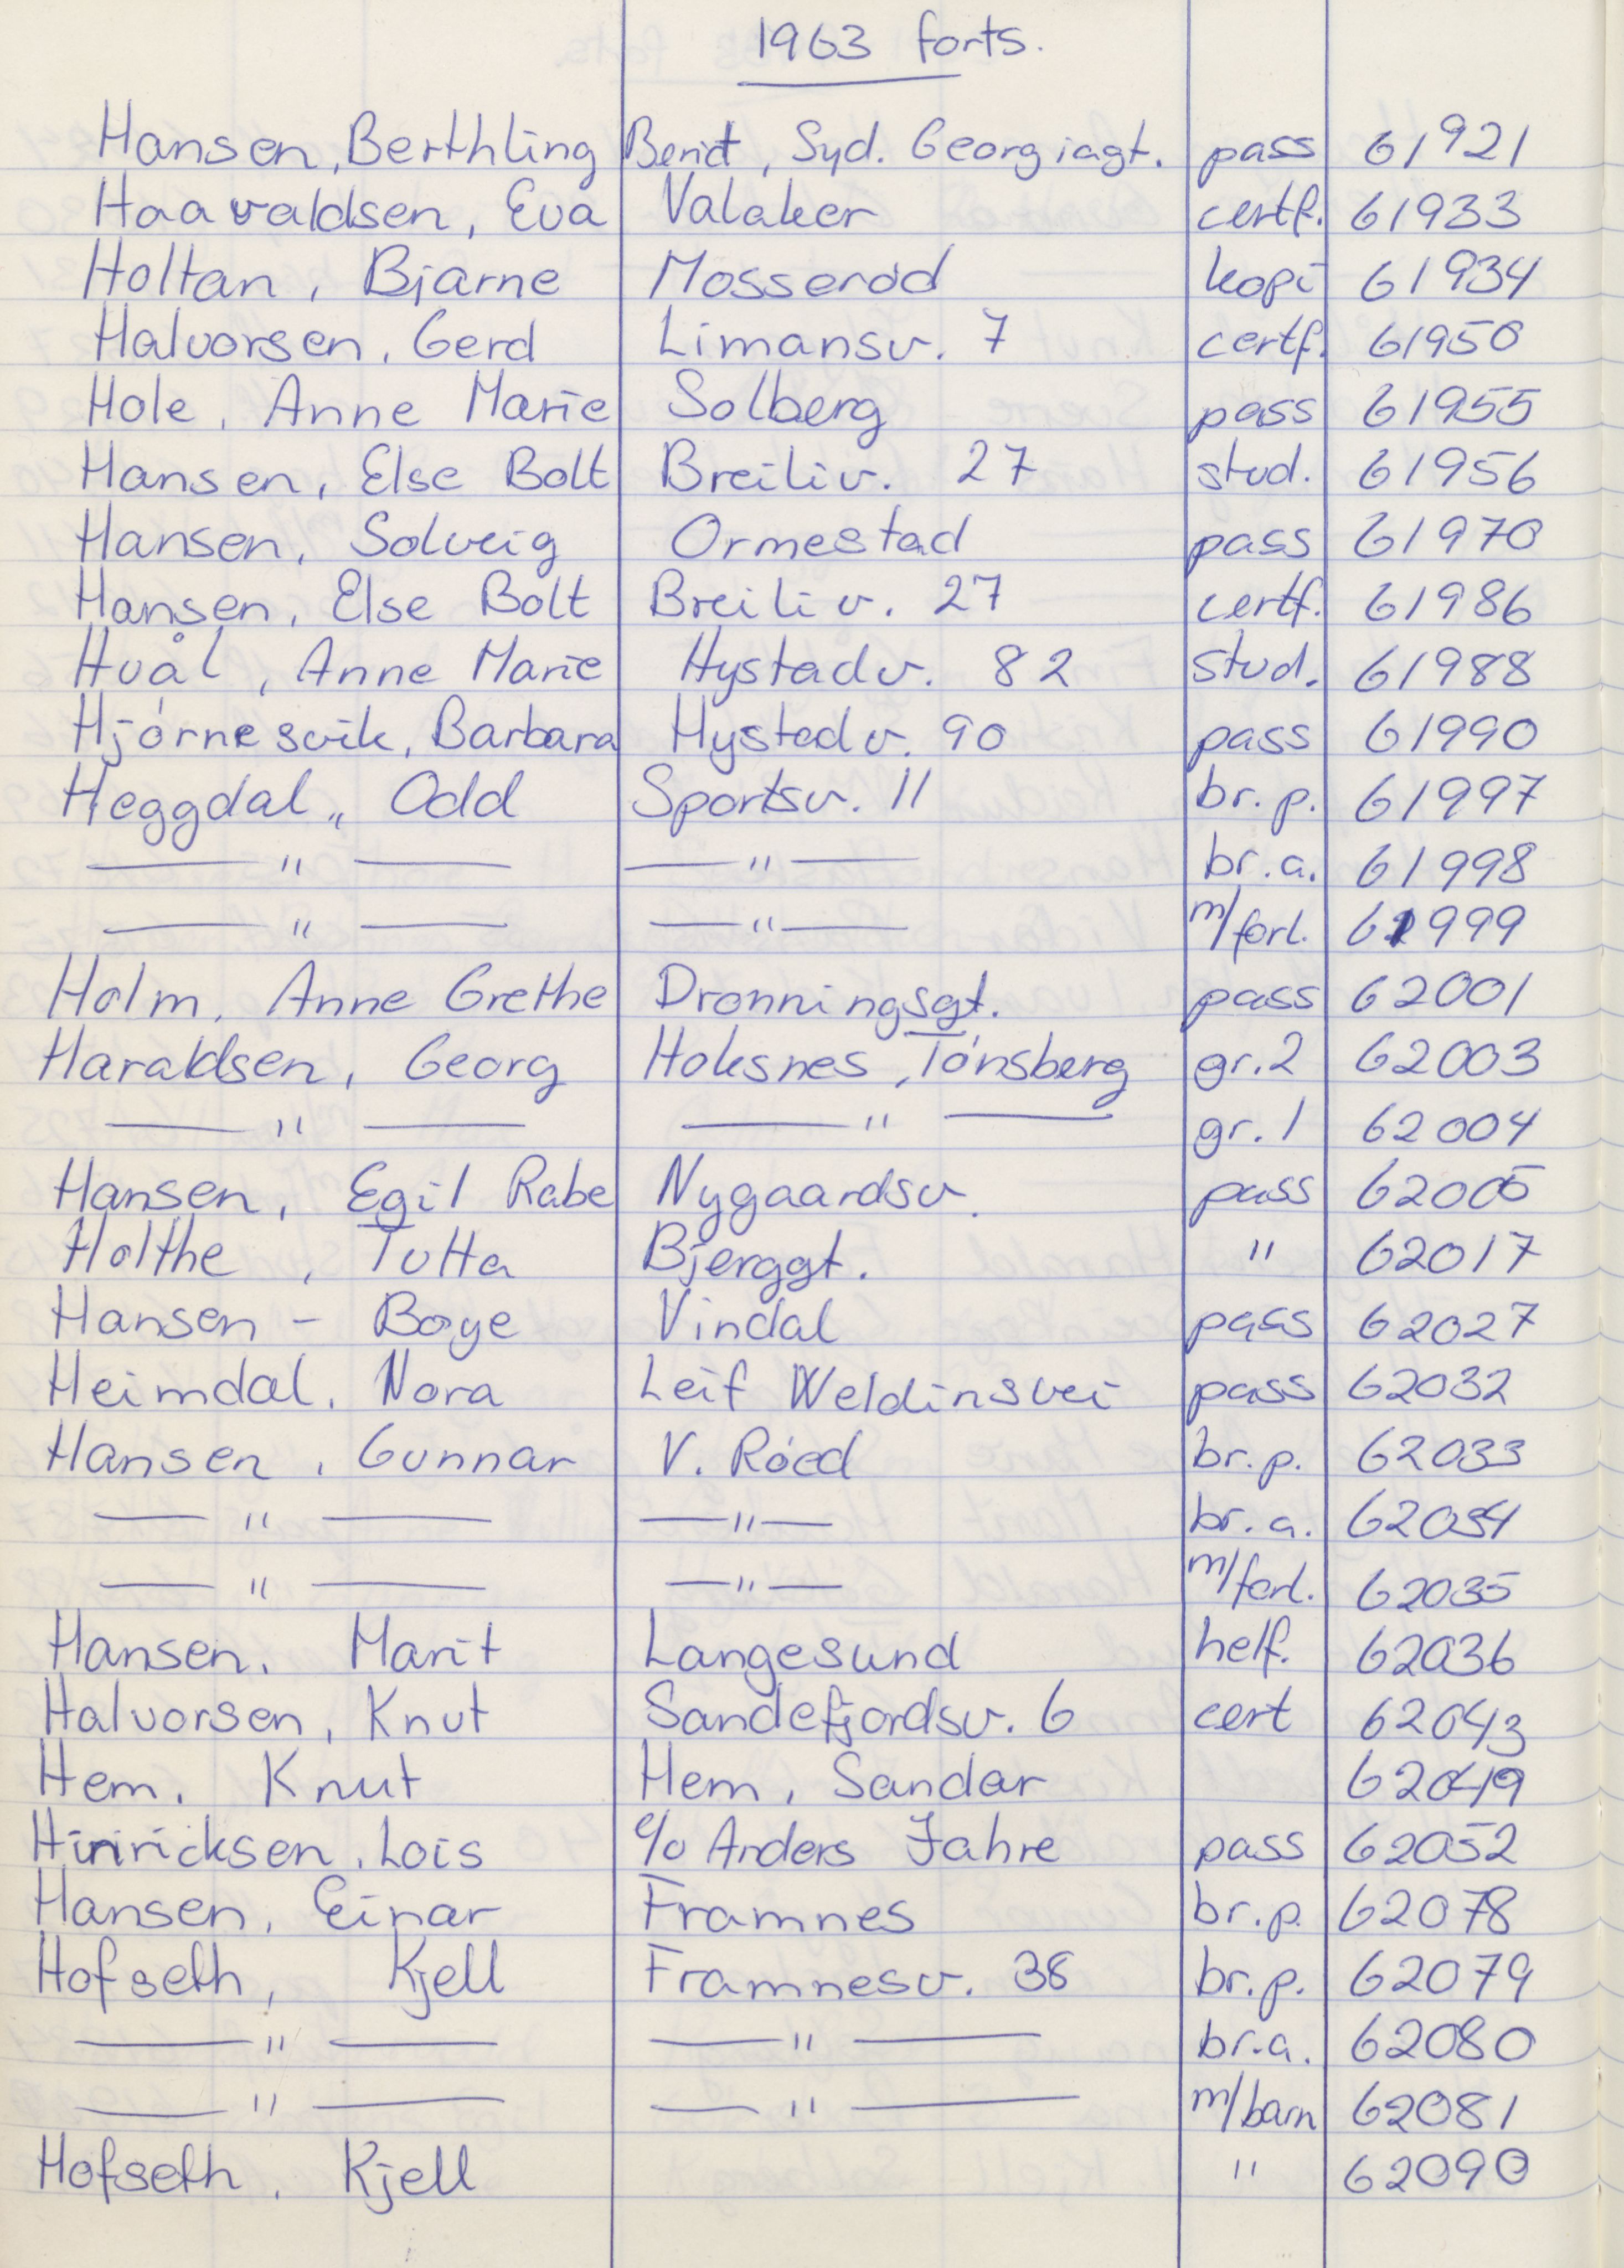 1963 forts.
Hansen, Berthling Berict, Syd. Georgiagt. pass 61921
Haavaldsen, Eva Valaker certf. 61933
Holtan, Bjarne Mosserød kopi 61934
Halvorsen, Gerd Limansv. 7 certf. 61950
Hole, Anne Marie Solberg pass 61955
Hansen, Else Bolt Breiliv. 27 stud. 61956
Hansen, Solveig Ormestad pass 61970
Hansen, Else Bolt Breiliv. 27 certf. 61986
Hvål, Anne Marie Hystadv. 82 stud. 61988
Hjørnesvik, Barbara Hystadv. 90 pass 61990
Heggdal,, Odd Sportsv. 11 br.p. 61997
—— " —— —— " —— br.a. 61998
—— " —— —— " —— m/forl. 61999
Holm, Anne Grethe Dronningsgt. pass 62001
Haraldsen, Georg Hoksnes, Tønsberg gr.2 62003
—— " —— —— " —— gr.1 62004
Hansen, Egil Rabe Nygaardsv. pass 62005
Holthe, Tutta Bjerggt. " 62017
Hansen - Boye Vindal pass 62027
Heimdal, Nora Leif Weldinsvei pass 62032
Hansen, Gunnar V. Røed br.p. 62033
—— " —— —— " —— br.a. 62034
—— " —— —— " —— m/forl. 62035
Hansen, Marit Langesund helf. 62036
Halvorsen, Knut Sandefjordsv. 6 cert 62043
Hem, Knut Hem, Sandar 62049
Hinricksen, Lois c/o Anders Jahre pass 62052
Hansen, Einar Framnes br.p. 62078
Hofseth, Kjell Framnesv. 38 br.p. 62079
—— " —— —— " —— br.a. 62080
—— " —— —— " —— m/barn 62081
Hofseth, Kjell " 62090